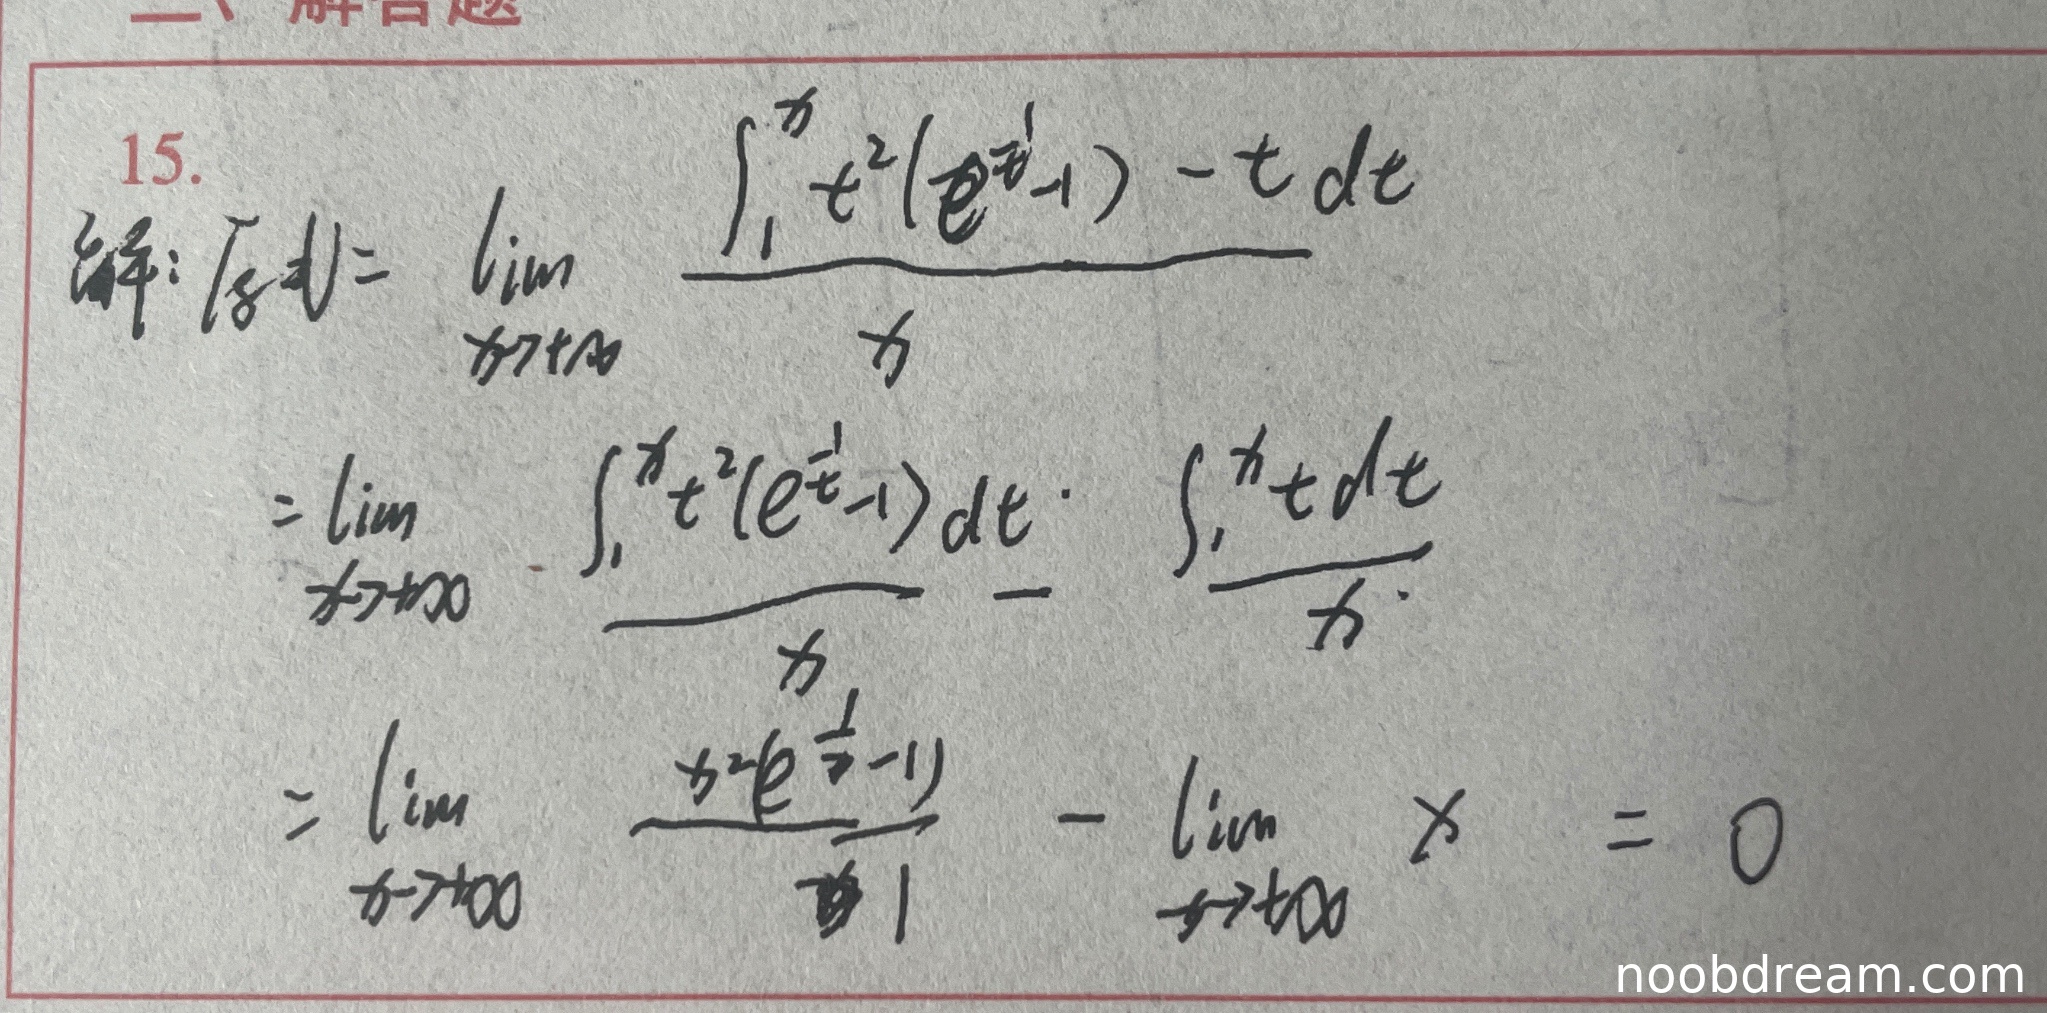 二、解答题
15.
解: 原式 = lim_{x→+∞} \frac{∫_1^x t²(e^{\frac{1}{t}}-1) - t dt}{x}
= lim_{x→+∞} \frac{∫_1^x t²(e^{\frac{1}{t}}-1) dt}{x} - \frac{∫_1^x t dt}{x}
= lim_{x→+∞} \frac{x²(e^{\frac{1}{x}}-1)}{1} - lim_{x→+∞} x = 0
noobdream.com